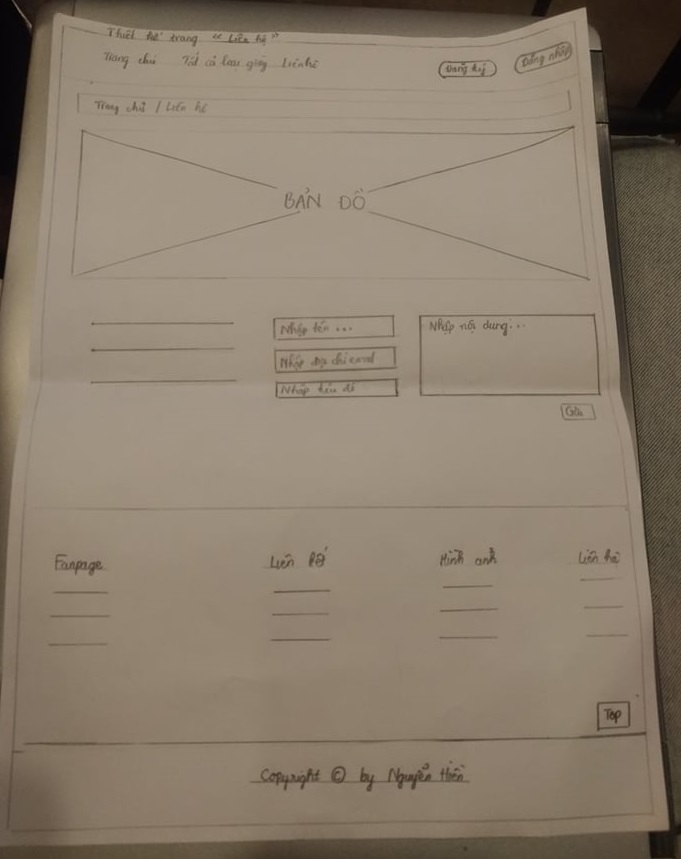 Thiết kế trang "Liên hệ"
Trang chủ Tất cả loại giày Liên hệ
Đăng ký Đăng nhập
Trang chủ / Liên hệ
BẢN ĐỒ
Nhập tên ...
Nhập địa chỉ email
Nhập tiêu đề
Nhập nội dung...
Gửi
Fanpage Liên kết Hình ảnh Liên hệ
Top
Copyright © by Nguyễn Hiền